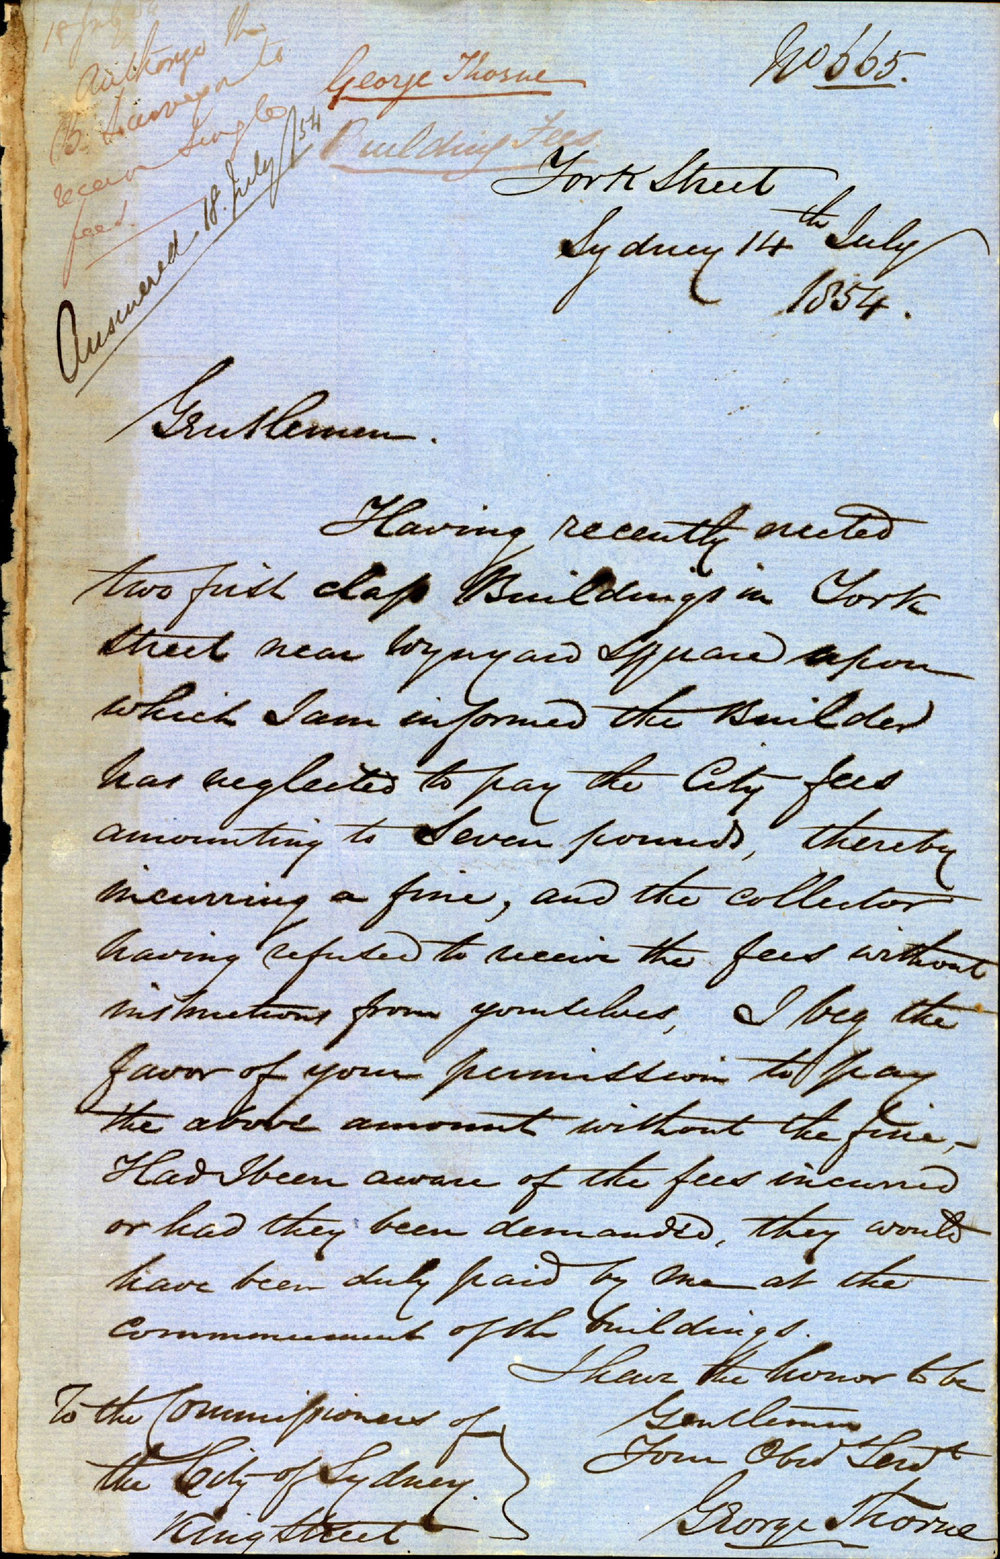 18 July 54
Authorize the
B. Surveyor to
receive single
fees.
Answered 18. July /54
George Thorne
Building Fees
No 665.
York Street
Sydney 14th July
1854.
Gentlemen.
Having recently erected
two first class Buildings in York
street near Wynyard Square upon
which I am informed the Builder
has neglected to pay the City fees
amounting to Seven pounds, thereby
incurring a fine, and the collector
having refused to receive the fees without
instructions from yourselves, I beg the
favor of your permission to pay
the above amount without the fine,-
Had I been aware of the fees incurred
or had they been demanded, they would
have been duly paid by me at the
commencement of the buildings.
I have the honor to be
Gentlemen
Your Obed Servt
George Thorne
To the Commissioners of
the City of Sydney.
King Street